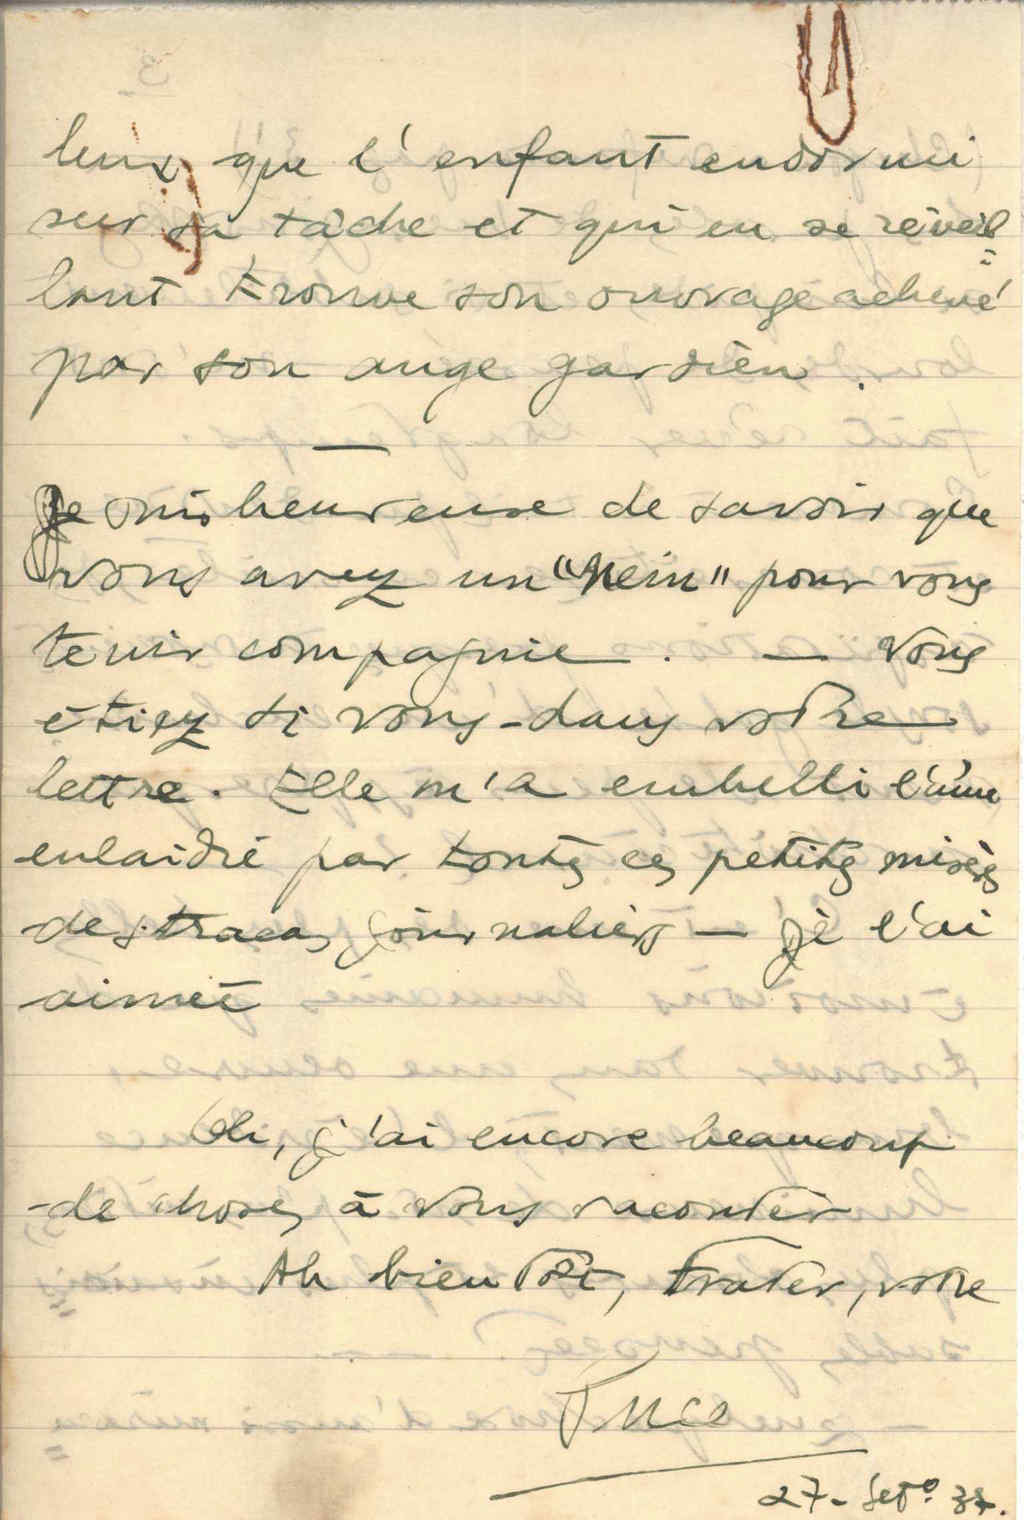 leux que l'enfant endormi
sur sa tâche et qui en se réveil=
lant trouve son ouvrage achevé
par son ange gardien.
—
Je suis heureuse de savoir que
vous avez un "Nein" pour vous
tenir compagnie. — Vous
étiez si vous-dans votre
lettre. Elle m'a embelli l'âme
enlaidie par toutes ces petites misères
des tracas journaliers — je l'ai
aimée
Oh, j'ai encore beaucoup
de choses à vous raconter
Ah bientôt, Frater, votre
27-Setº. 37.